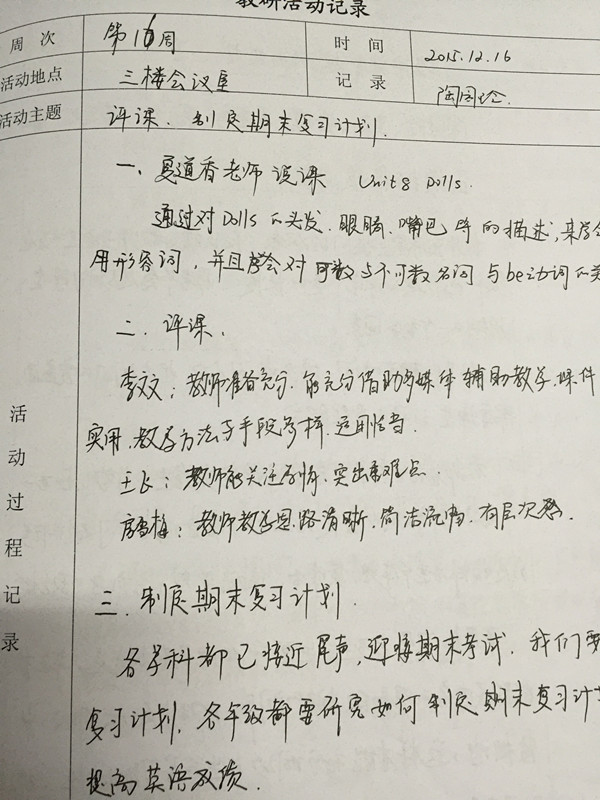 教研活动记录
周次 第16周 时间 2015.12.16
活动地点 三楼会议室 记录
活动主题 评课、制定期末复习计划.
活动过程记录
一、夏道香老师说课 Unit8 Dolls.
通过对Dolls的头发、眼睛、嘴巴等的描述,来学会
用形容词,并且学会对可数与不可数名词与be动词的
二、评课.
李文:教师准备充分,能充分借助多媒体辅助教学,课件
实用,教学方法与手段多样,运用恰当.
王飞:教师能关注学情,突出重难点.
梅:教师教学思路清晰,简洁流畅,有层次感.
三、制定期末复习计划.
各学科都已接近尾声,迎接期末考试,我们要
复习计划,各年级都要研究如何制定期末复习计划
提高英语成绩.